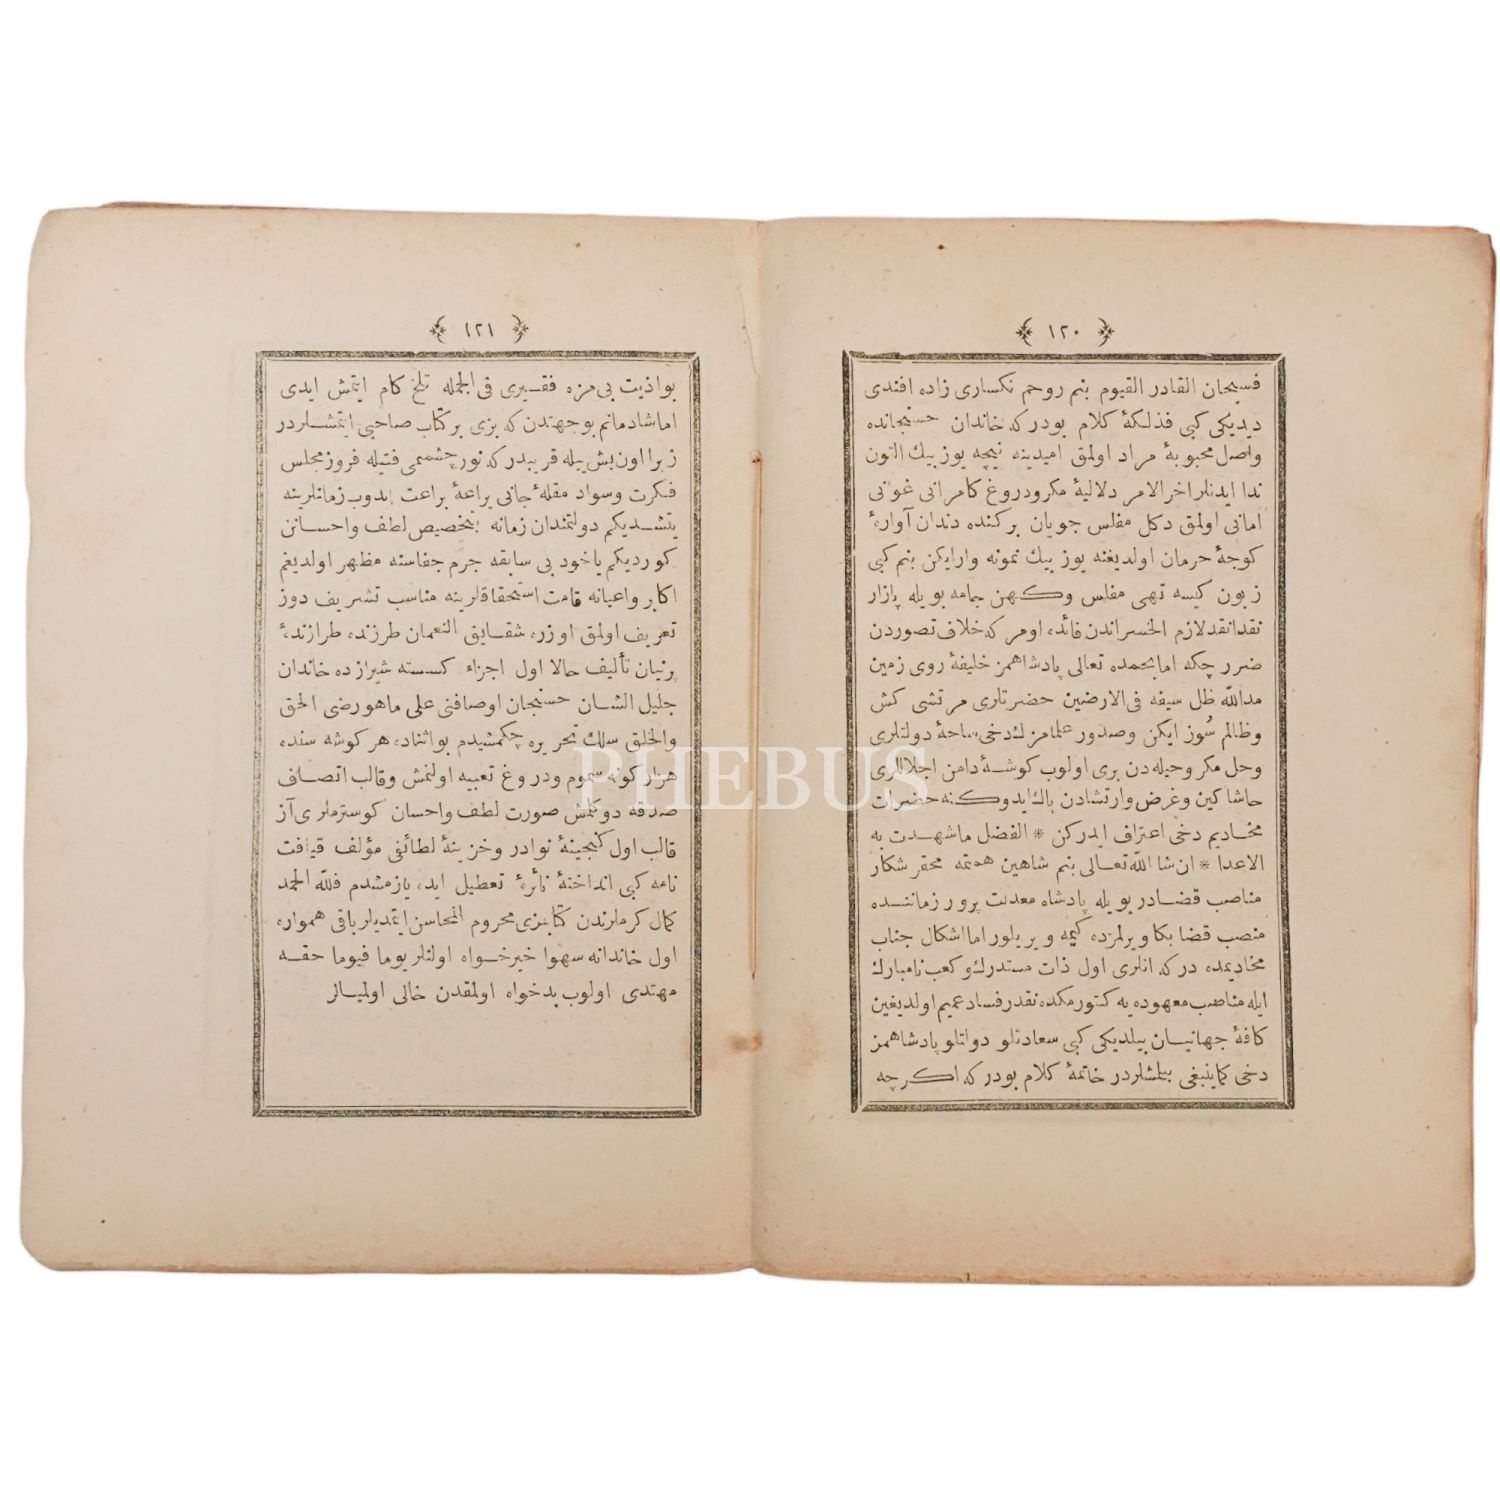 ١٢٠
فسبحان القادر القيوم بنم روحم نكساری زاده افندی
ديديكی كبی فذلكۀ كلام بودر كه خاندان حسنجانده
واصل محبوبۀ مراد اولمق اميدينه نيچه يوز بيك التون
ندا ايدنلر اخر الامر دلاليۀ مكرودروغ كامرانی غوانی
امانی اولمق دكل مفلس جويان بركنده دندان آوارۀ
كوچۀ حرمان اولديغنه يوز بيك نمونه وارايكن بنم كبی
زبون كيسه تهی مفلس وكهن جامه بويله پازار
نقدانقد لازم الخسراندن فائده اومر كه خلاف تصوردن
ضرر چكه امابحمده تعالی پادشاهمز خليفۀ روی زمين
مدالله ظل سيفه فی الارضين حضرتلری مرتشی كش
وظالم سوز ايكن وصدور علمامزك دخی ساحۀ دولتلری
وحل مكر وحيله دن بری اولوب كوشۀ دامن اجلاللری
حاشا كين وغرض وارتشادن پاك ايدوكنه حضرات
مخاديم دخی اعتراف ايدركن * الفضل ماشهدت به
الاعدا * ان شا الله تعالی بنم شاهين همتمه محقر شكار
مناصب قضادر بويله پادشاه معدلت پرور زماننده
منصب قضا بكا ويرلمزده كيمه ويريلور اما اشكال جناب
مخاديمده در كه انلری اول ذات مستدرك وكعب نامبارك
ايله مناصب معهوده يه كتورمكده نقدر فساد عميم اولديغين
كافۀ جهانيان بيلديكی كبی سعادتلو دولتلو پادشاهمز
دخی كماينبغی بيلمشلردر خاتمۀ كلام بودر كه اكرچه
١٢١
بواذيت بی مزه فقيری فی الجمله تلخ كام ايتمش ايدی
اماشادمانم بوجهتدن كه بزی بر كتاب صاحبی ايتمشلردر
زيرا اون بش ييله قريبدر كه نور چشممی فتيله فروز مجلس
فكرت وسواد مقلۀ جانی يراعۀ براعت ايدوب زمانلرينه
يتشديكم دولتمندان زمانه بتخصيص لطف واحسانن
كورديكم ياخود بی سابقه جرم جفاسنه مظهر اولديغم
اكابر واعيانه قامت استحقاقلرينه مناسب تشريف دوز
تعريف اولمق اوزره شقايق النعمان طرزنده طرازندۀ
پرنيان تأليف حالا اول اجزاء كسسته شيرازه ده خاندان
جليل الشان حسنجان اوصافنی علی ماهورضی الحق
والخلق سلك تحريره چكمشيدم بواثناده هر كوشه سنده
هزار كونه سموم ودروغ تعبيه اولنمش وقالب اتصاف
صدقه دوكلمش صورت لطف واحسان كوسترملری آز
قالب اول كنجينۀ نوادر وخزينۀ لطائفی مؤلف قيافت
نامه كبی انداختۀ نائرۀ تعطيل ايده يازمشدم فلله الحمد
كمال كرملرندن كتابمزی محروم المحاسن ايتمديلر باقی همواره
اول خاندانه سهوا خيرخواه اولنلر يوما فيوما حقه
مهتدی اولوب بدخواه اولمقدن خالی اولميالر
PHEBUS